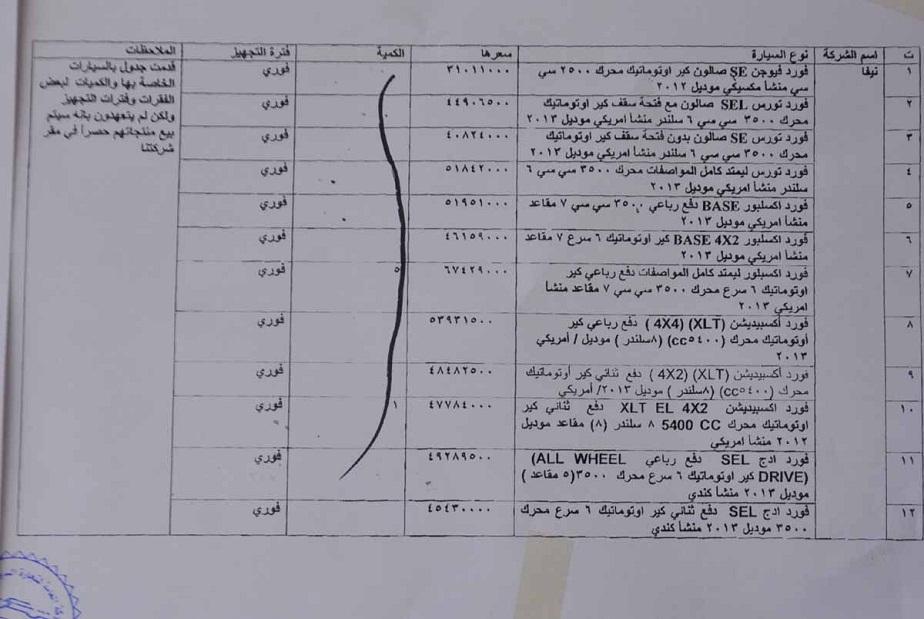 ت اسم الشركة نوع السيارة سعرها الكمية فترة التجهيز الملاحظات
١ نيفا فورد فيوجن SE صالون كير اوتوماتيك محرك ٢٥٠٠ سي ٣١٠١١٠٠٠ فوري
سي منشأ مكسيكي موديل ٢٠١٢
٢ فورد تورس SEL صالون مع فتحة سقف كير اوتوماتيك ٤٤٩٠٦٥٠٠ فوري
محرك ٣٥٠٠ سي سي ٦ سلندر منشأ امريكي موديل ٢٠١٣
٣ فورد تورس SE صالون بدون فتحة سقف كير اوتوماتيك ٤٠٨٢٤٠٠٠ فوري
محرك ٣٥٠٠ سي سي ٦ سلندر منشأ امريكي موديل ٢٠١٣
٤ فورد تورس ليمتد كامل المواصفات محرك ٣٥٠٠ سي سي ٦ ٥١٨٤٢٠٠٠ فوري
سلندر منشأ امريكي موديل ٢٠١٣
٥ فورد اكسلبور BASE دفع رباعي ٣٥٠٠ سي سي ٧ مقاعد ٥١٩٥١٠٠٠ فوري
منشأ امريكي موديل ٢٠١٣
٦ فورد اكسلبور BASE 4X2 كير اوتوماتيك ٦ سرع ٧ مقاعد ٤٦١٥٩٠٠٠ فوري
منشأ امريكي موديل ٢٠١٣
٧ فورد اكسبلور ليمتد كامل المواصفات دفع رباعي كير ٦٧٤٢٩٠٠٠ ٥ فوري
اوتوماتيك ٦ سرع محرك ٣٥٠٠ سي سي ٧ مقاعد منشأ
امريكي ٢٠١٣
٨ فورد أكسبيديشن (XLT) (4X4 ) دفع رباعي كير ٥٣٩٣١٥٠٠ فوري
أوتوماتيك محرك (cc٥٤٠٠) (٨سلندر ) موديل / أمريكي
٢٠١٣
٩ فورد أكسبيديشن (XLT) (4X2 ) دفع ثنائي كير أوتوماتيك ٤٨٤٨٢٥٠٠ فوري
محرك (cc٥٤٠٠) (٨سلندر ) موديل ٢٠١٣/ أمريكي
١٠ فورد اكسبيديشن XLT EL 4X2 دفع ثنائي كير ٤٧٧٨٤٠٠٠ ١ فوري
اوتوماتيك محرك 5400 CC ٨ سلندر (٨) مقاعد موديل
٢٠١٢ منشأ امريكي
١١ فورد ادج SEL دفع رباعي (ALL WHEEL ٤٩٢٨٩٥٠٠ فوري
DRIVE) كير اوتوماتيك ٦ سرع محرك ٣٥٠٠(٥ مقاعد )
موديل ٢٠١٣ منشأ كندي
١٢ فورد ادج SEL دفع ثنائي كير اوتوماتيك ٦ سرع محرك ٤٥٤٣٠٠٠٠ فوري
٣٥٠٠ موديل ٢٠١٣ منشأ كندي
قدمت جدول بالسيارات
الخاصة بها والكميات لبعض
الفقرات وفترات التجهيز
ولكن لم يتعهدون بانه سيتم
بيع منتجاتهم حصراً في مقر
شركتنا